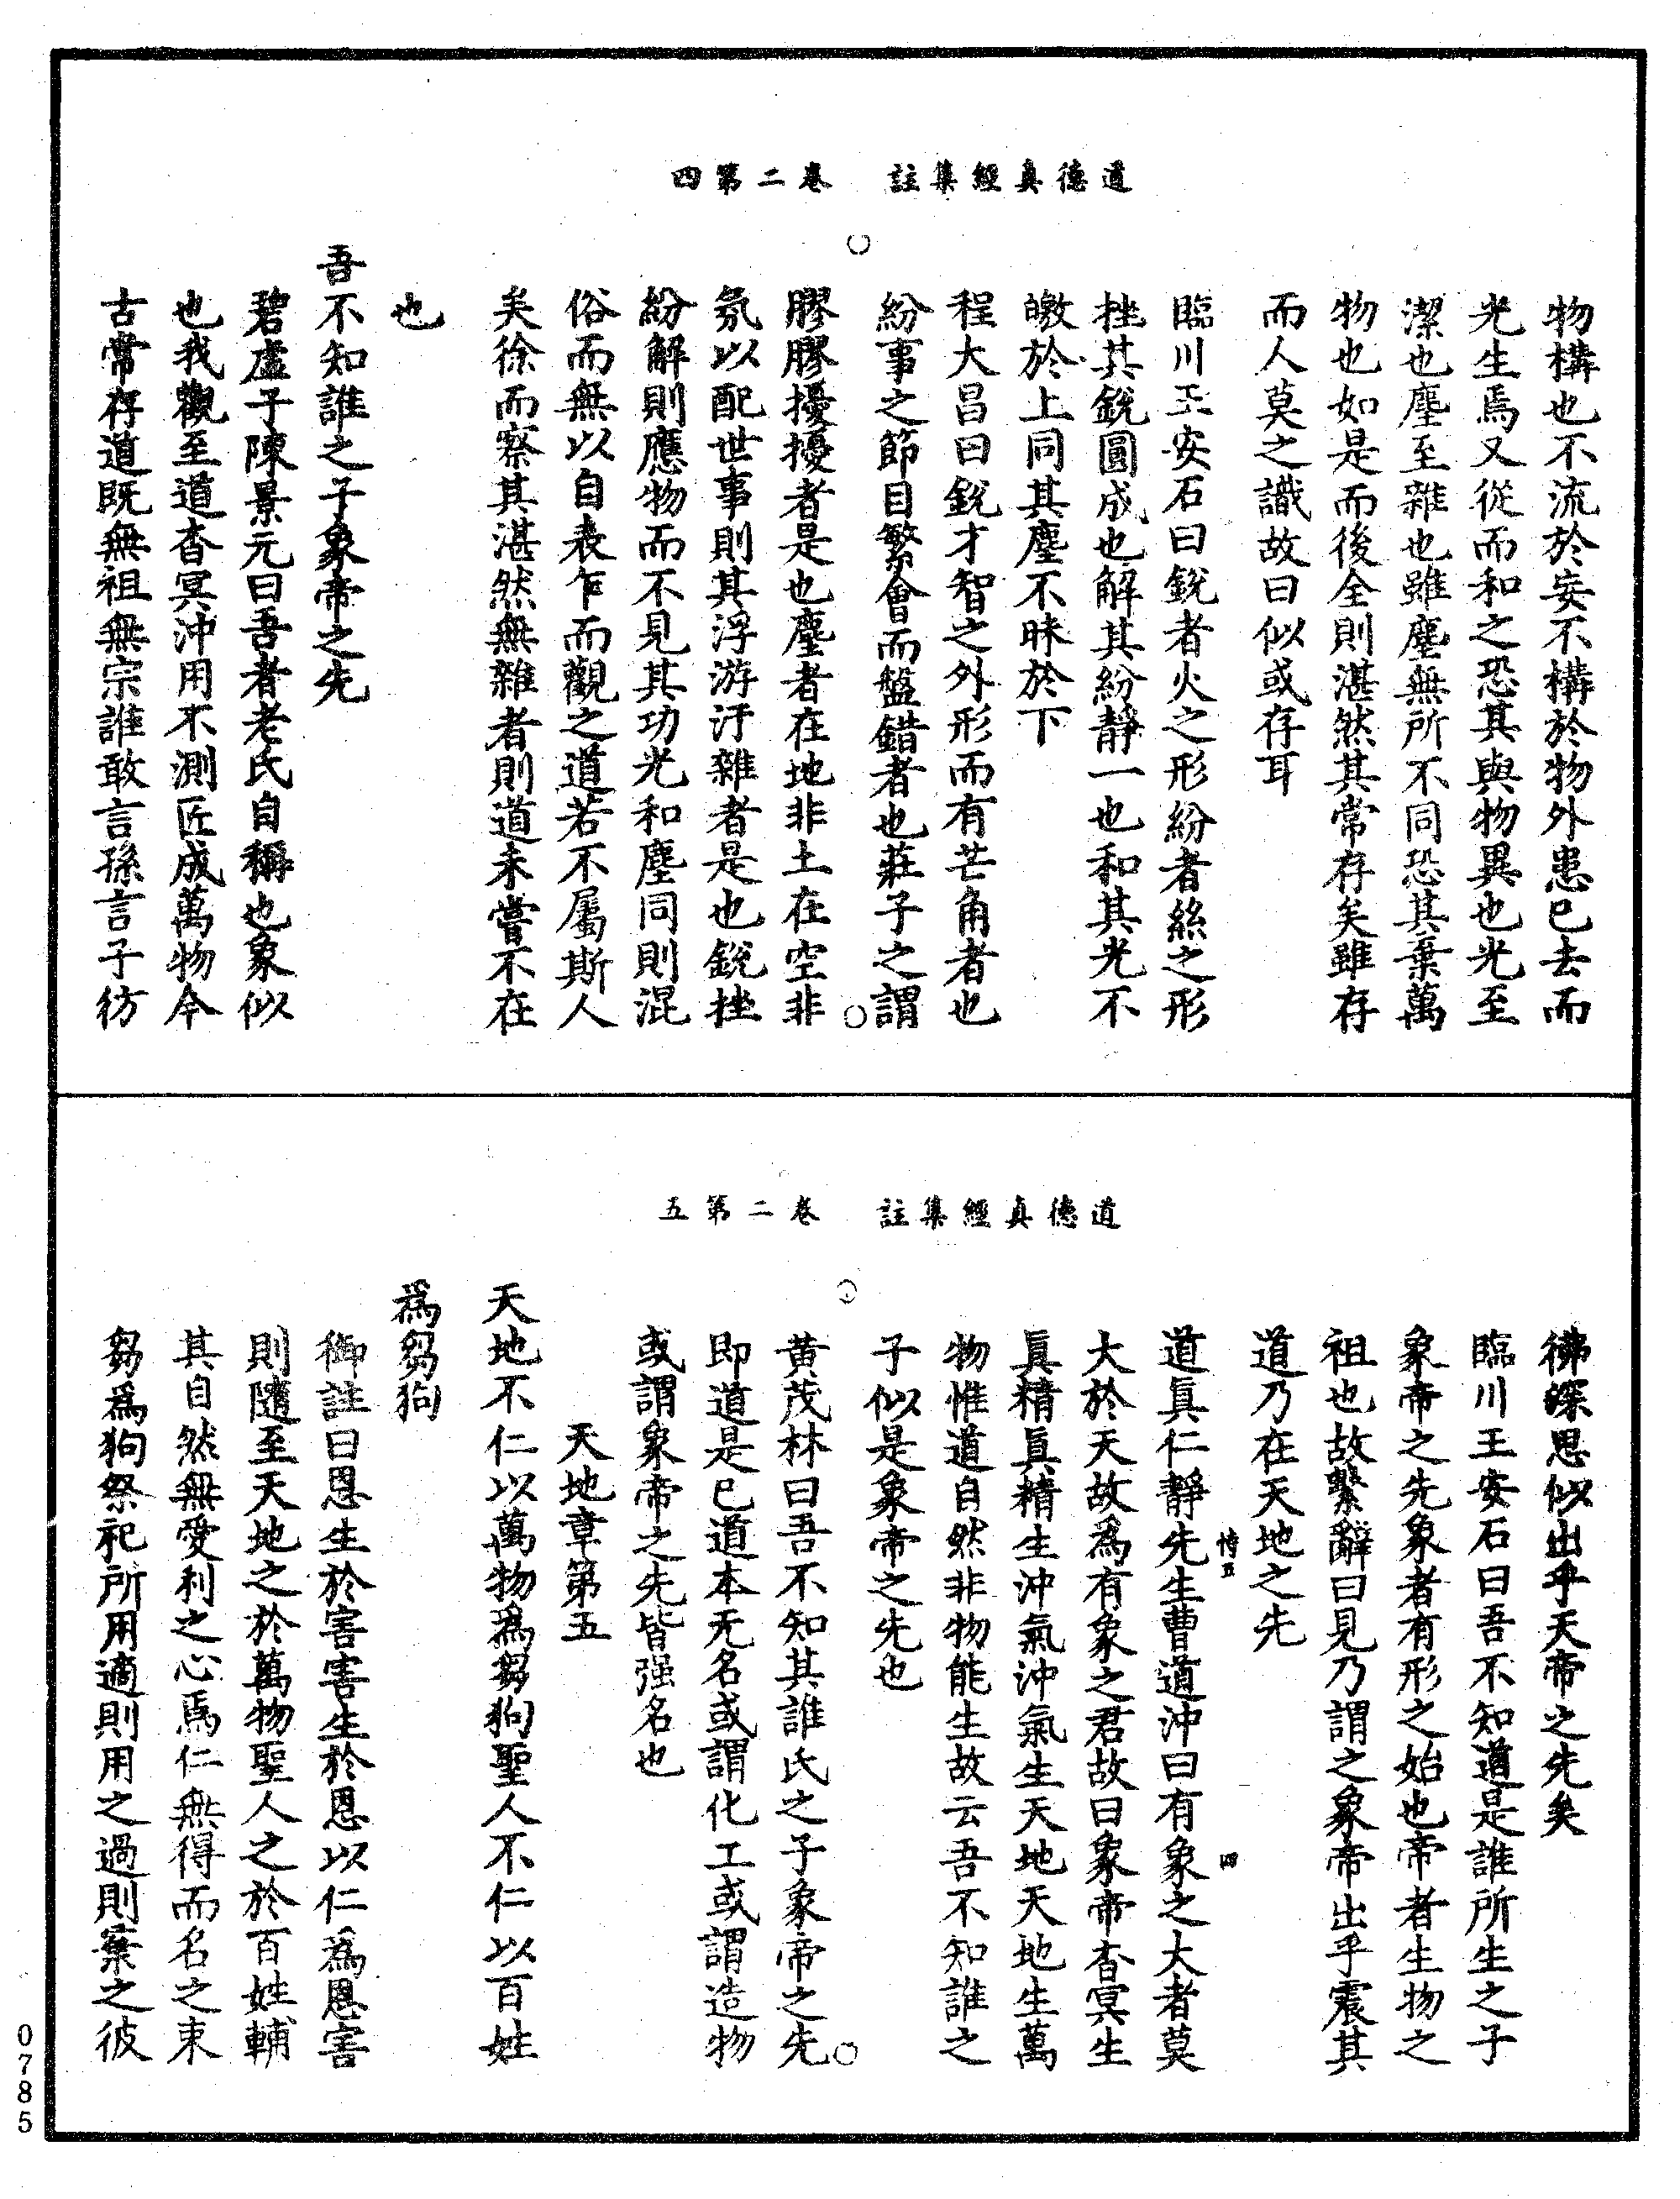 道德真經集註　卷二第四
物構也不流於妄不構於物外患已去而
光生焉又從而和之恐其與物異也光至
潔也塵至雜也雖塵無所不同恐其棄萬
物也如是而後全則湛然其常存矣雖存
而人莫之識故曰似或存耳
臨川王安石曰銳者火之形紛者絲之形
挫其銳圓成也解其紛靜一也和其光不
皦於上同其塵不昧於下
程大昌曰銳才智之外形而有芒角者也
紛事之節目繁會而盤錯者也莊子之謂
膠膠擾擾者是也塵者在地非土在空非
氛以配世事則其浮游汙雜者是也銳挫
紛解則應物而不見其功光和塵同則混
俗而無以自表乍而觀之道若不屬斯人
矣徐而察其湛然無雜者則道未嘗不在
也
吾不知誰之子象帝之先
碧虛子陳景元曰吾者老氏自稱也象似
也我觀至道杳冥沖用不測匠成萬物今
古常存道既無祖無宗誰敢言孫言子彷
道德真經集註　卷二第五
彿深思似出乎天帝之先矣
臨川王安石曰吾不知道是誰所生之子
象帝之先象者有形之始也帝者生物之
祖也故繫辭曰見乃謂之象帝出乎震其
道乃在天地之先
道真仁靜先生曹道沖曰有象之大者莫
大於天故為有象之君故曰象帝杳冥生
真精真精生沖氣沖氣生天地天地生萬
物惟道自然非物能生故云吾不知誰之
子似是象帝之先也
黃茂林曰吾不知其誰氏之子象帝之先
即道是已道本无名或謂化工或謂造物
或謂象帝之先皆强名也
天地章第五
天地不仁以萬物為芻狗聖人不仁以百姓
為芻狗
御註曰恩生於害害生於恩以仁為恩害
則隨至天地之於萬物聖人之於百姓輔
其自然無愛利之心焉仁無得而名之束
芻為狗祭祀所用適則用之過則棄之彼
四
0785